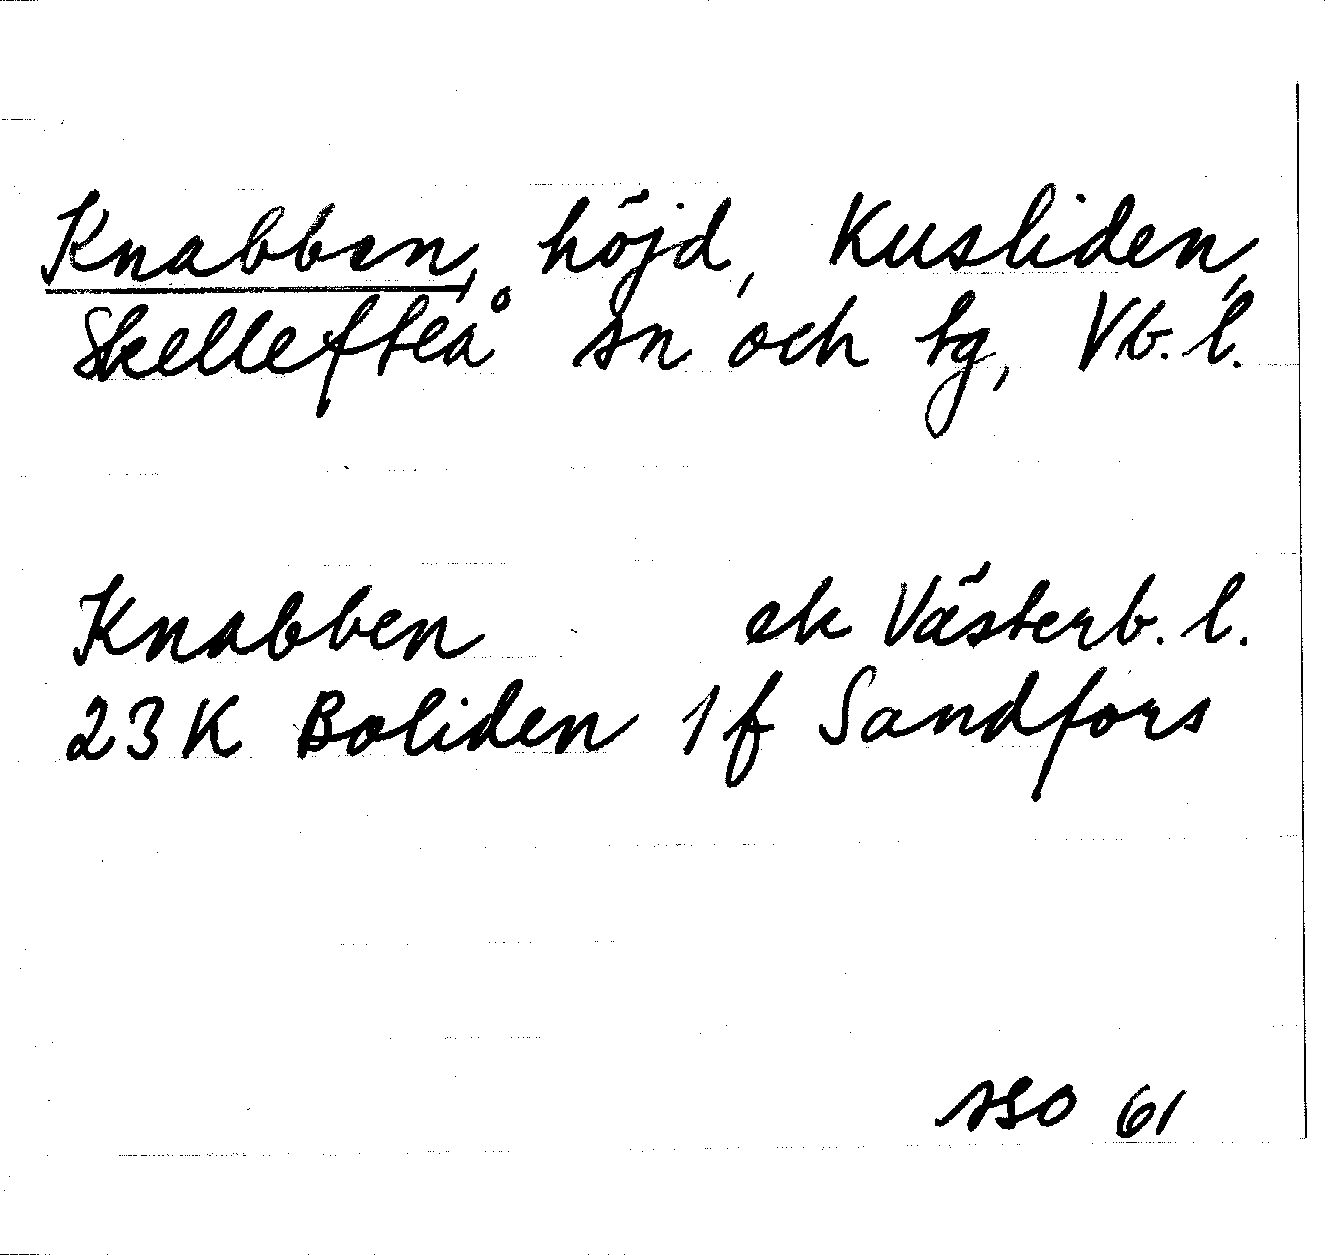 Knabben, höjd, Kusliden,
Skellefteå sn och tg, Vb. l.
Knabben ek Västerb. l.
23 K Boliden 1 f Sandfors
61